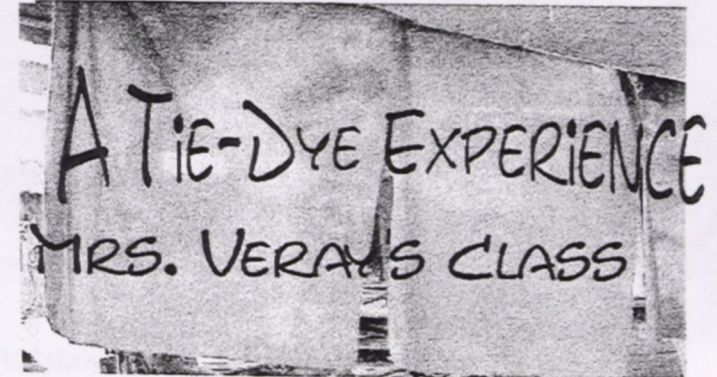 A TiE-DYE EXPERiENCE
MRS. VERAY'S CLASS